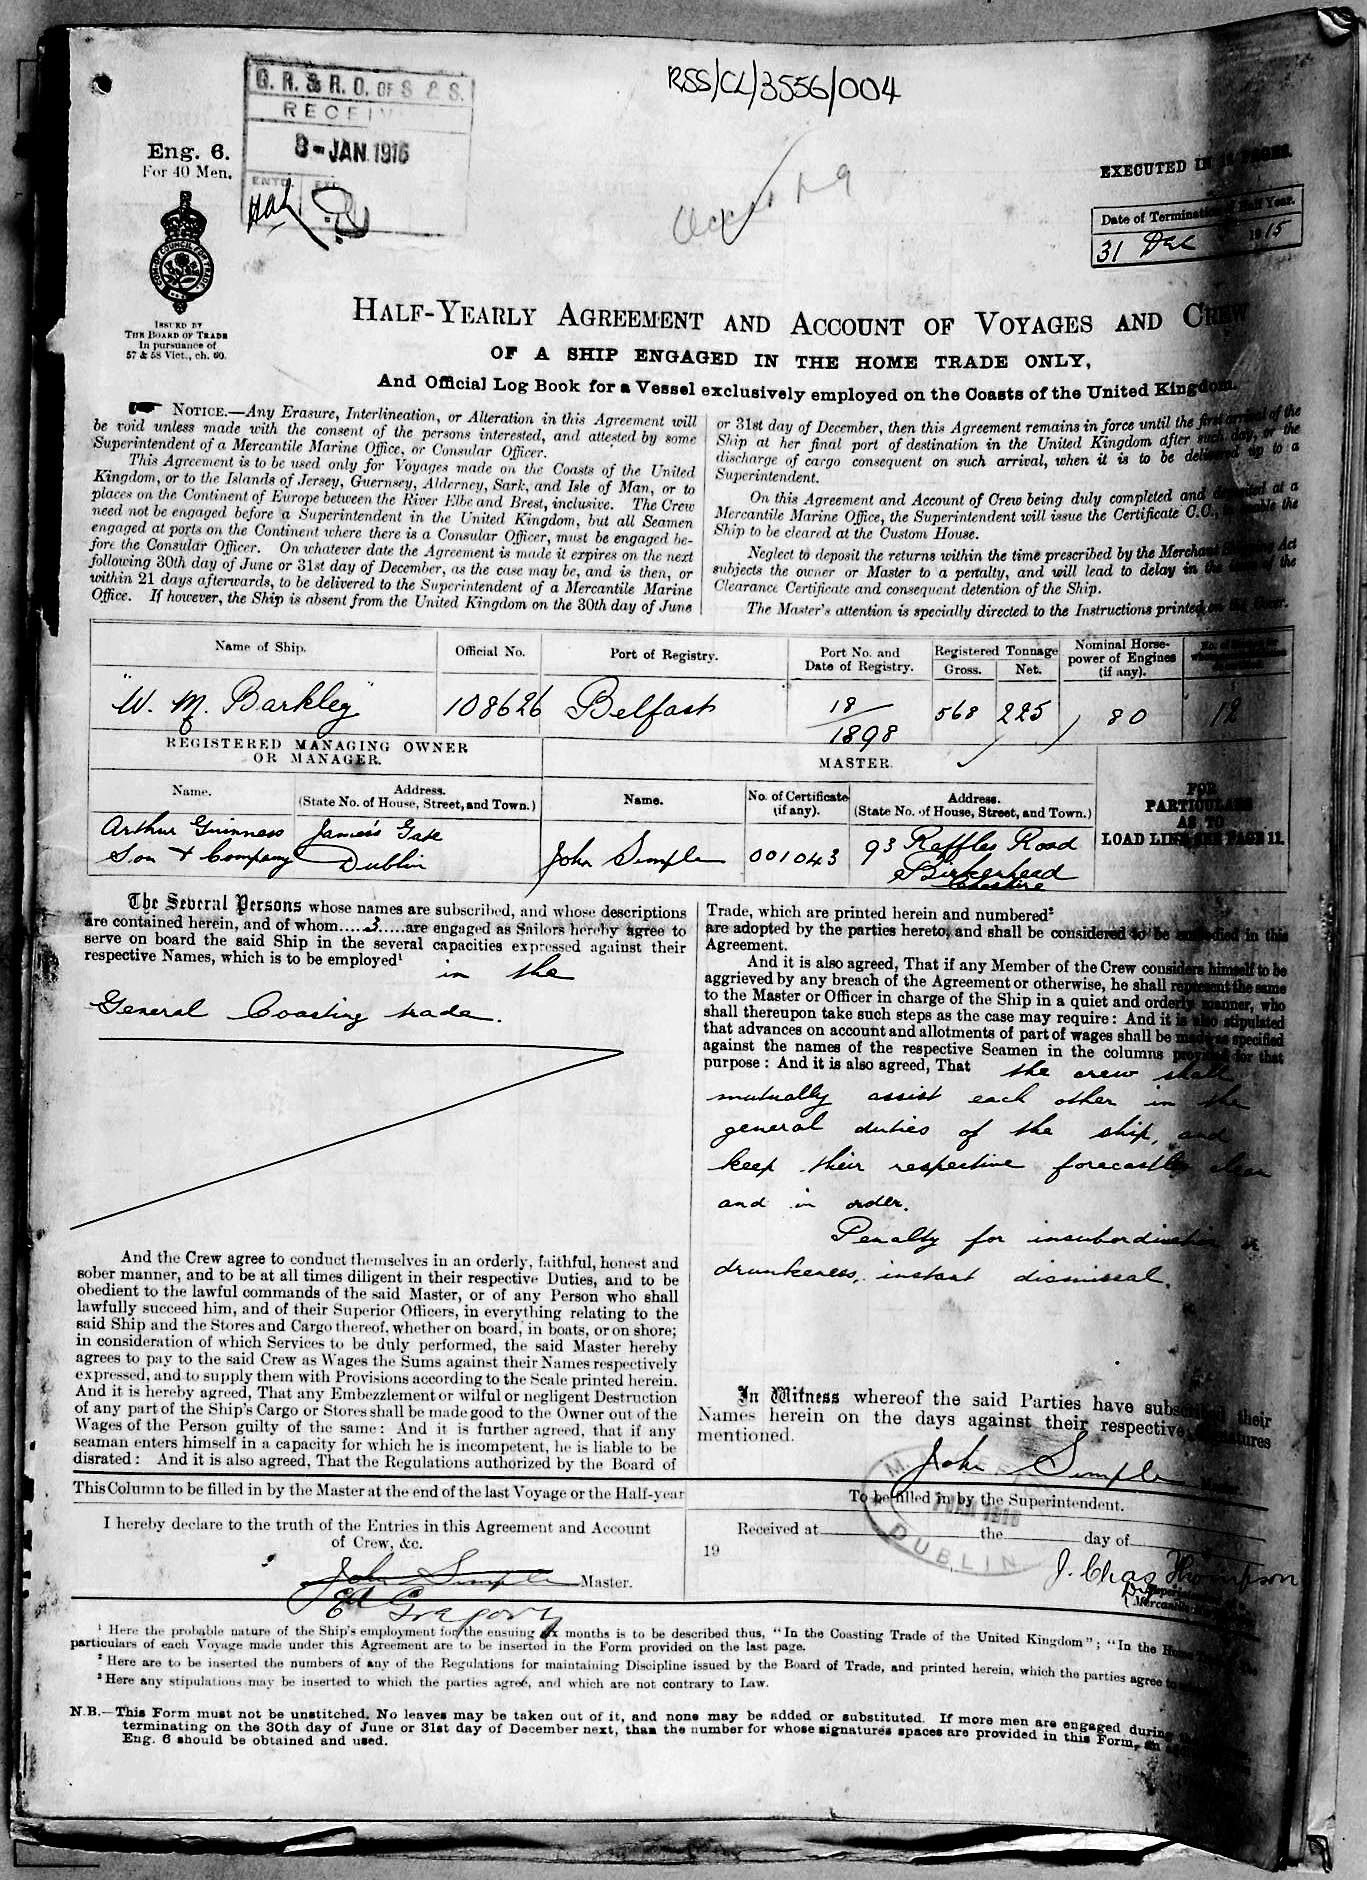 RSS/CL/3556/004
G. R. & R. O. OF S & S.
RECEIV
8-JAN.1916
ENTD.
Eng. 6.
For 40 Men.
EXECUTED IN PAGES.
Date of Termination of Half Year.
31 Dec 1915
ISSUED BY
THE BOARD OF TRADE
In pursuance of
57 & 58 Vict., ch. 60.
HALF-YEARLY AGREEMENT AND ACCOUNT OF VOYAGES AND CREW
OF A SHIP ENGAGED IN THE HOME TRADE ONLY,
And Official Log Book for a Vessel exclusively employed on the Coasts of the United Kingdom.
NOTICE.—Any Erasure, Interlineation, or Alteration in this Agreement will
be void unless made with the consent of the persons interested, and attested by some
Superintendent of a Mercantile Marine Office, or Consular Officer.
This Agreement is to be used only for Voyages made on the Coasts of the United
Kingdom, or to the Islands of Jersey, Guernsey, Alderney, Sark, and Isle of Man, or to
places on the Continent of Europe between the River Elbe and Brest, inclusive. The Crew
need not be engaged before a Superintendent in the United Kingdom, but all Seamen
engaged at ports on the Continent where there is a Consular Officer, must be engaged be-
fore the Consular Officer. On whatever date the Agreement is made it expires on the next
following 30th day of June or 31st day of December, as the case may be, and is then, or
within 21 days afterwards, to be delivered to the Superintendent of a Mercantile Marine
Office. If however, the Ship is absent from the United Kingdom on the 30th day of June
or 31st day of December, then this Agreement remains in force until the first arrival of the
Ship at her final port of destination in the United Kingdom after such day, or the
discharge of cargo consequent on such arrival, when it is to be delivered up to a
Superintendent.
On this Agreement and Account of Crew being duly completed and deposited at a
Mercantile Marine Office, the Superintendent will issue the Certificate C.C., to enable the
Ship to be cleared at the Custom House.
Neglect to deposit the returns within the time prescribed by the Merchant Shipping Act
subjects the owner or Master to a penalty, and will lead to delay in the issue of the
Clearance Certificate and consequent detention of the Ship.
The Master's attention is specially directed to the Instructions printed on the Cover.
Name of Ship. Official No. Port of Registry. Port No. and Date of Registry. Registered Tonnage Gross. Net. Nominal Horse-power of Engines (if any).
"W. M. Barkley" 108626 Belfast 18/1898 568 225 80 12
REGISTERED MANAGING OWNER
OR MANAGER.
MASTER.
Name. Address. (State No. of House, Street, and Town.) Name. No. of Certificate (if any). Address. (State No. of House, Street, and Town.)
FOR
PARTICULARS
AS TO
LOAD LINE SEE PAGE 11.
Arthur Guinness James's Gate
Son & Company Dublin John Semple 001043 93 Raffles Road
Birkenhead
Cheshire
The Several Persons whose names are subscribed, and whose descriptions
are contained herein, and of whom.....3.....are engaged as Sailors hereby agree to
serve on board the said Ship in the several capacities expressed against their
respective Names, which is to be employed¹ in the
General Coasting trade.
And the Crew agree to conduct themselves in an orderly, faithful, honest and
sober manner, and to be at all times diligent in their respective Duties, and to be
obedient to the lawful commands of the said Master, or of any Person who shall
lawfully succeed him, and of their Superior Officers, in everything relating to the
said Ship and the Stores and Cargo thereof, whether on board, in boats, or on shore;
in consideration of which Services to be duly performed, the said Master hereby
agrees to pay to the said Crew as Wages the Sums against their Names respectively
expressed, and to supply them with Provisions according to the Scale printed herein.
And it is hereby agreed, That any Embezzlement or wilful or negligent Destruction
of any part of the Ship's Cargo or Stores shall be made good to the Owner out of the
Wages of the Person guilty of the same: And it is further agreed, that if any
seaman enters himself in a capacity for which he is incompetent, he is liable to be
disrated: And it is also agreed, That the Regulations authorized by the Board of
Trade, which are printed herein and numbered²
are adopted by the parties hereto, and shall be considered to be embodied in this
Agreement.
And it is also agreed, That if any Member of the Crew considers himself to be
aggrieved by any breach of the Agreement or otherwise, he shall represent the same
to the Master or Officer in charge of the Ship in a quiet and orderly manner, who
shall thereupon take such steps as the case may require: And it is also stipulated
that advances on account and allotments of part of wages shall be made as specified
against the names of the respective Seamen in the columns provided for that
purpose: And it is also agreed, That the crew shall
mutually assist each other in the
general duties of the ship, and
keep their respective forecastles clean
and in order.
Penalty for insubordination or
drunkeness, instant dismissal.
In Witness whereof the said Parties have subscribed their
Names herein on the days against their respective Signatures
mentioned.
John Semple Master.
This Column to be filled in by the Master at the end of the last Voyage or the Half-year
I hereby declare to the truth of the Entries in this Agreement and Account
of Crew, &c.
John Semple Master.
Gregory
To be filled in by the Superintendent.
Received at the day of
19
DUBLIN
J. Chas Thompson
¹ Here the probable nature of the Ship's employment for the ensuing six months is to be described thus, "In the Coasting Trade of the United Kingdom"; "In the Home
particulars of each Voyage made under this Agreement are to be inserted in the Form provided on the last page.
² Here are to be inserted the numbers of any of the Regulations for maintaining Discipline issued by the Board of Trade, and printed herein, which the parties agree to
³ Here any stipulations may be inserted to which the parties agree, and which are not contrary to Law.
N.B.—This Form must not be unstitched. No leaves may be taken out of it, and none may be added or substituted. If more men are engaged during
terminating on the 30th day of June or 31st day of December next, than the number for whose signatures spaces are provided in this Form, an
Eng. 6 should be obtained and used.